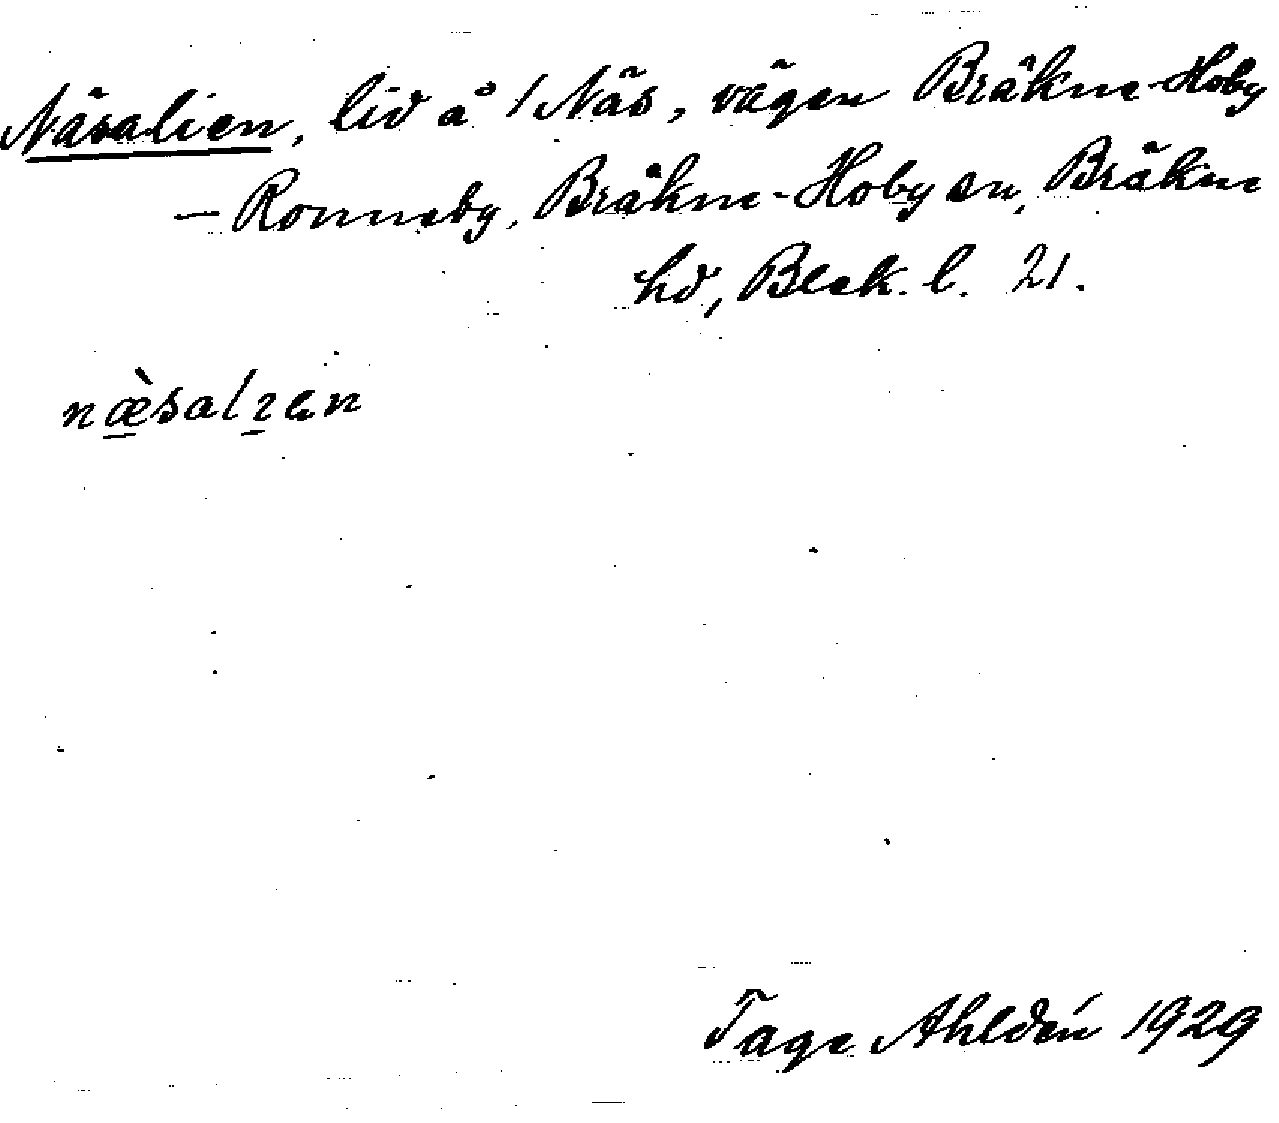 Näsalien, lid å 1 Näs, vägen Bräkne-Hoby
— Ronneby, Bräkne-Hoby sn, Bräkne
hd, Blek. l. 21.
næ̀salɩen
Tage Ahldén 1929